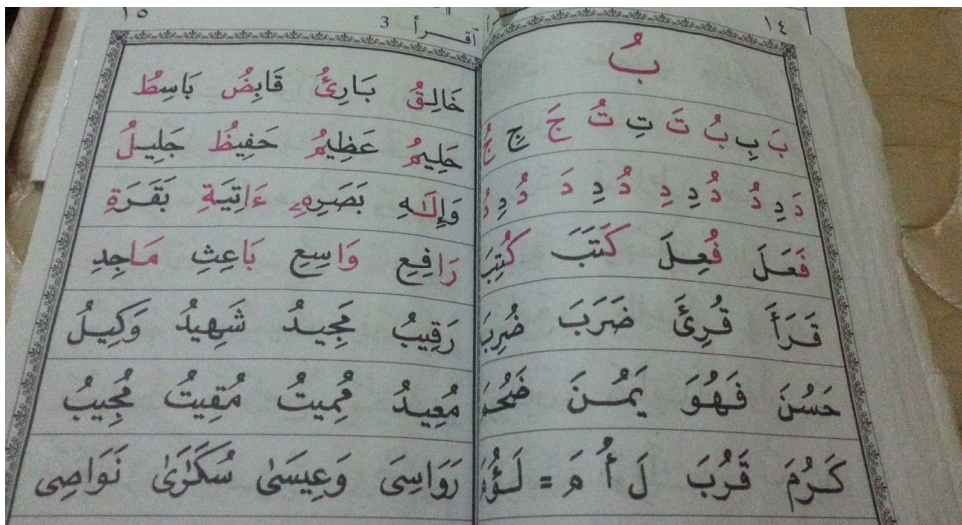 ١٤
بُ
بَ بِ بُ تَ تِ تُ جَ جِ جُ
دَ دِ دُ دُ دِ دِ دُ دِ دَ دُ دِ دُ
فَعَلَ فُعِلَ كَتَبَ كُتِبَ
قَرَأَ قُرِئَ ضَرَبَ ضُرِبَ
حَسُنَ فَهُوَ يَمُنَ
كَرُمَ قَرُبَ لَ أُ مَ = لَؤُمَ
اقـرأ 3 ١٥
خَالِقُ بَارِئُ قَابِضُ بَاسِطُ
حَلِيمُ عَظِيمُ حَفِيظُ جَلِيلُ
وَإِلَٰهِ بَصَرِهِۦ ءَاتِيَةِ بَقَرَةِ
رَافِعِ وَاسِعِ بَاعِثِ مَاجِدِ
رَقِيبُ مَجِيدُ شَهِيدُ وَكِيلُ
مُعِيدُ مُمِيتُ مُقِيتُ مُجِيبُ
رَوَاسِىَ وَعِيسَىٰ سُكَٰرَىٰ نَوَاصِى